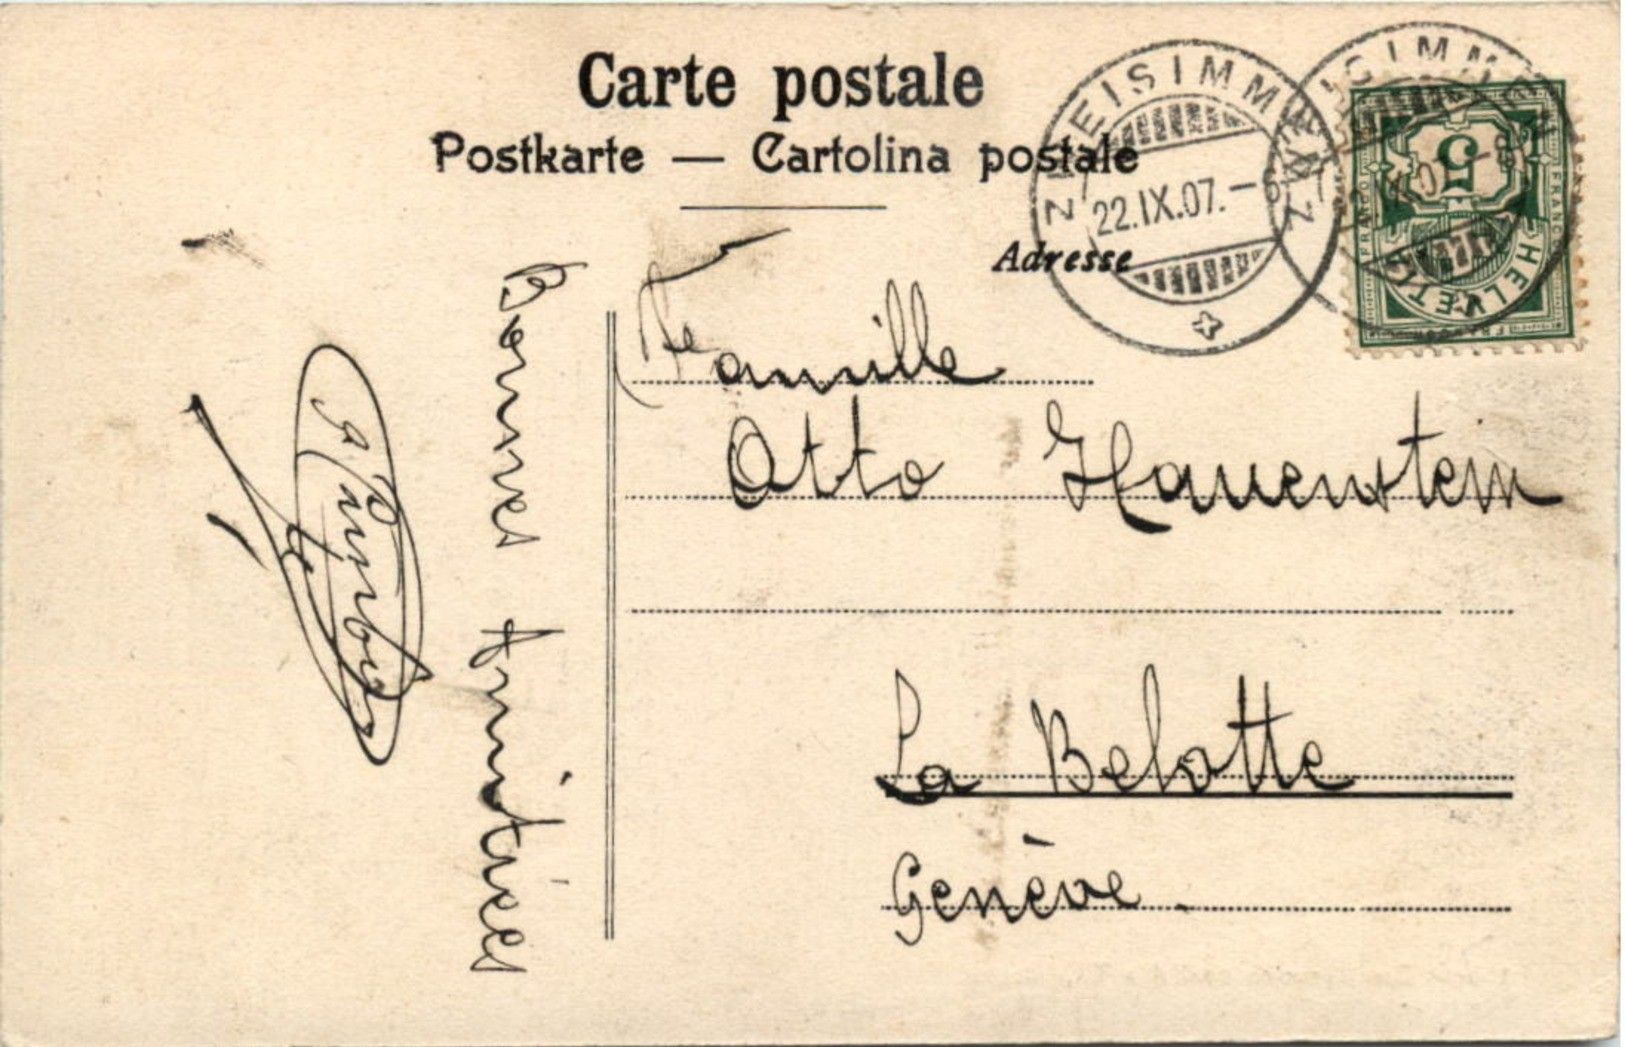 Carte postale
Postkarte — Cartolina postale
ZWEISIMMEN
22.IX.07.
ZWEISIMMEN
5
FRANCO
FRANCO
HELVETIA
Adresse
Famille
Otto Hauenstein
La Belotte
Genève
Bonnes Amitiées